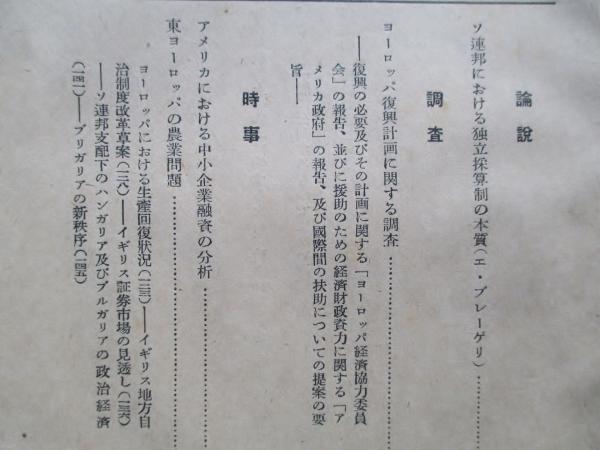 論說
ソ連邦における独立採算制の本質(エ・ブレーゲリ)…………
調査
ヨーロッパ復興計画に関する調査…………
――復興の必要及びその計画に関する「ヨーロッパ経済協力委員
会」の報告、並びに援助のための経済財政資力に関する「ア
メリカ政府」の報告、及び國際間の扶助についての提案の要
旨――
時事
アメリカにおける中小企業融資の分析…………
東ヨーロッパの農業問題…………
ヨーロッパにおける生産回復狀況(一三三)――イギリス地方自
治制度改革草案(一三八)――イギリス証券市場の見透し(一三六)
――ソ連邦支配下のハンガリア及びブルガリアの政治経済
(一四一)――ブリガリアの新秩序(一四五)